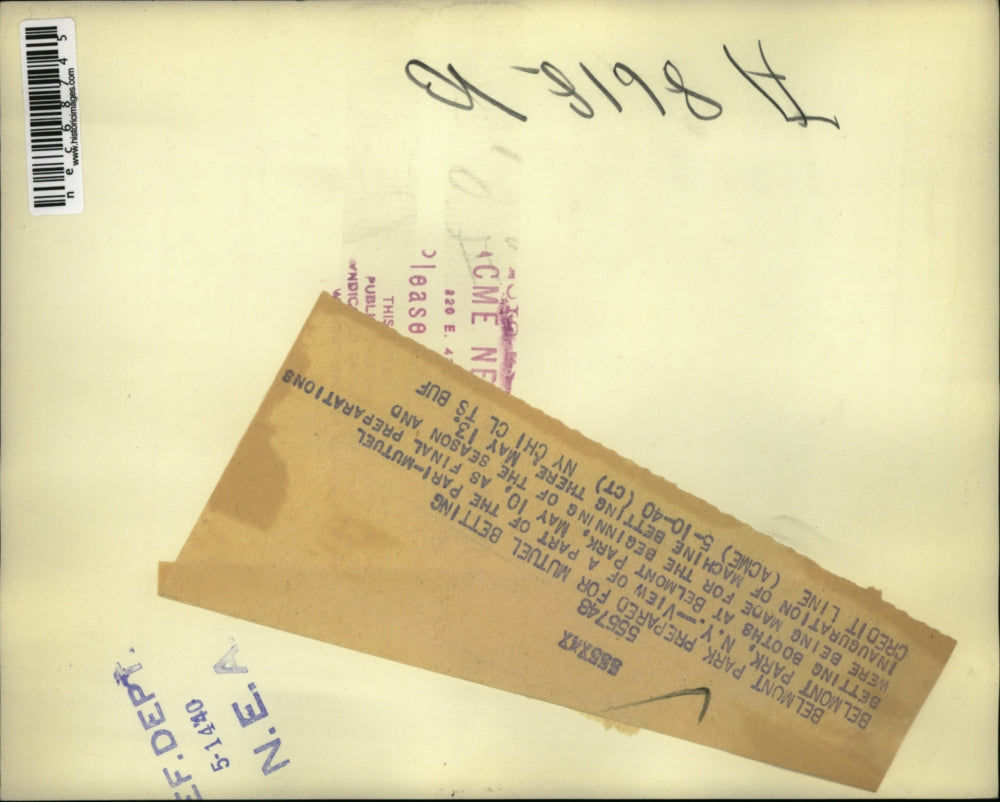 nec68745
www.historicimages.com
A 8618-B
ACME NE
820 E. 4
lease
THIS
PUBL
YNDIC
555748
BELMONT PARK PREPARED FOR MUTUEL BETTING
BELMONT PARK, N.Y.--VIEW OF A PART OF THE PARI-MUTUEL
BETTING BOOTHS AT BELMONT PARK, MAY 10, AS FINAL PREPARATIONS
WERE BEING MADE FOR THE BEGINNING OF THE SEASON AND
INAUGURATION OF MACHINE BETTING THERE, MAY 13.
CREDIT LINE (ACME) 5-10-40 (CT) NY CHI CL TS BUF
EF. DEPT.
5-14 40
N.E.A